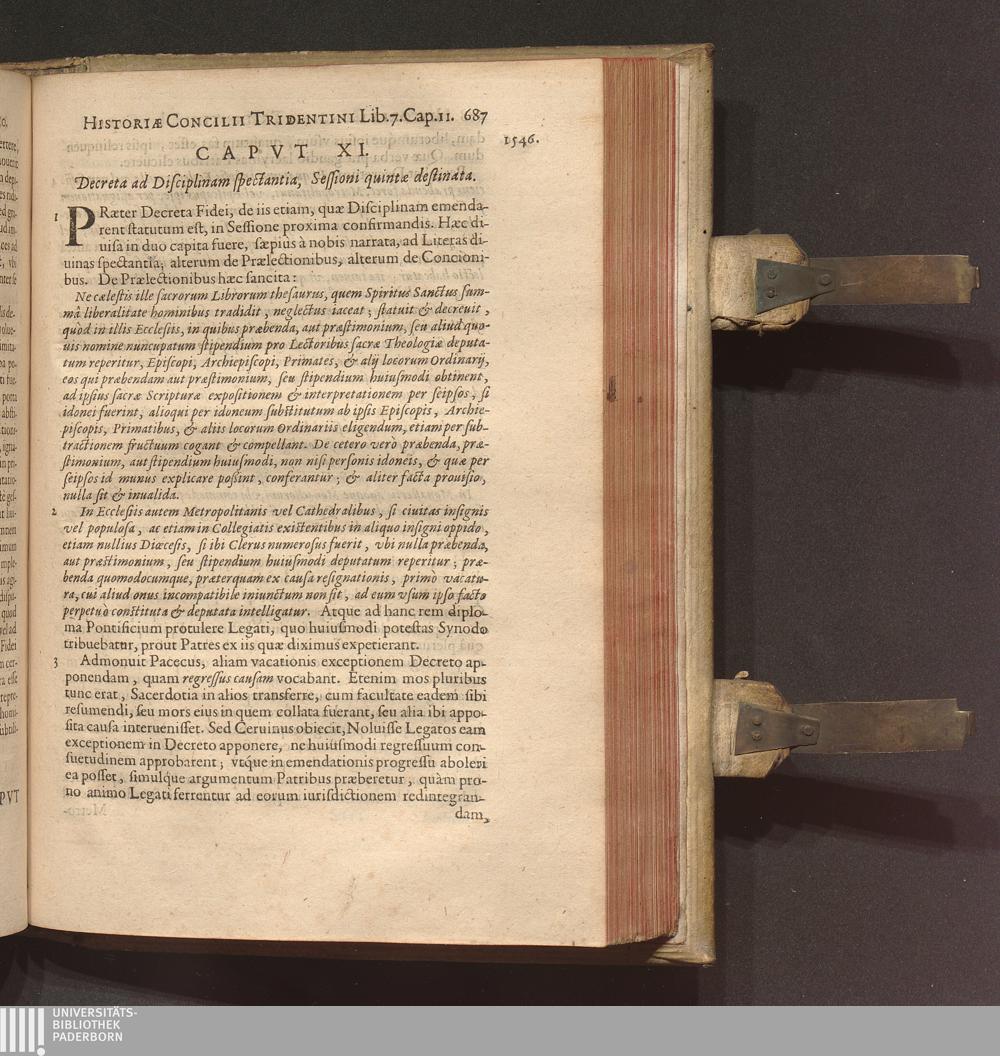 HISTORIÆ CONCILII TRIDENTINI Lib.7.Cap.11. 687
1546.
CAPVT XI.
Decreta ad Diſciplinam ſpectantia, Seſſioni quintæ deſtinata.
1 PRæter Decreta Fidei, de iis etiam, quæ Diſciplinam emenda-
rent ſtatutum eſt, in Seſſione proxima confirmandis. Hæc di-
uiſa in duo capita fuere, ſæpius à nobis narrata, ad Literas di-
uinas ſpectantia; alterum de Prælectionibus, alterum de Concioni-
bus. De Prælectionibus hæc ſancita:
Ne cæleſtis ille ſacrorum Librorum theſaurus, quem Spiritus Sanctus ſum-
mâ liberalitate hominibus tradidit, neglectus iaceat; ſtatuit & decreuit,
quòd in illis Eccleſiis, in quibus præbenda, aut præſtimonium, ſeu aliud quo-
uis nomine nuncupatum ſtipendium pro Lectoribus ſacræ Theologiæ deputa-
tum reperitur, Epiſcopi, Archiepiſcopi, Primates, & alij locorum Ordinarij,
eos qui præbendam aut præſtimonium, ſeu ſtipendium huiuſmodi obtinent,
ad ipſius ſacræ Scripturæ expoſitionem & interpretationem per ſeipſos, ſi
idonei fuerint, alioqui per idoneum ſubſtitutum ab ipſis Epiſcopis, Archie-
piſcopis, Primatibus, & aliis locorum Ordinariis eligendum, etiam per ſub-
tractionem fructuum cogant & compellant. De cetero verò præbenda, præ-
ſtimonium, aut ſtipendium huiuſmodi, non niſi perſonis idoneis, & quæ per
ſeipſos id munus explicare poßint, conferantur; & aliter facta prouiſio,
nulla ſit & inualida.
2 In Eccleſiis autem Metropolitanis vel Cathedralibus, ſi ciuitas inſignis
vel populoſa, ac etiam in Collegiatis exiſtentibus in aliquo inſigni oppido,
etiam nullius Diœceſis, ſi ibi Clerus numeroſus fuerit, vbi nulla præbenda,
aut præſtimonium, ſeu ſtipendium huiuſmodi deputatum reperitur; præ-
benda quomodocumque, præterquam ex cauſa reſignationis, primò vacatu-
ra, cui aliud onus incompatibile iniunctum non ſit, ad eum vſum ipſo facto
perpetuò conſtituta & deputata intelligatur. Atque ad hanc rem diplo-
ma Pontificium protulere Legati, quo huiuſmodi poteſtas Synodo
tribuebatur, prout Patres ex iis quæ diximus expetierant.
3 Admonuit Pacecus, aliam vacationis exceptionem Decreto ap-
ponendam, quam regreſſus cauſam vocabant. Etenim mos pluribus
tunc erat, Sacerdotia in alios transferre, cum facultate eadem ſibi
reſumendi, ſeu mors eius in quem collata fuerant, ſeu alia ibi appo-
ſita cauſa interueniſſet. Sed Ceruinus obiecit, Noluiſſe Legatos eam
exceptionem in Decreto apponere, ne huiuſmodi regreſſuum con-
ſuetudinem approbarent; vtque in emendationis progreſſu aboleri
ea poſſet, ſimulque argumentum Patribus præberetur, quàm pro-
no animo Legati ferrentur ad eorum iuriſdictionem redintegran-
dam,
PVT
UNIVERSITÄTS-
BIBLIOTHEK
PADERBORN